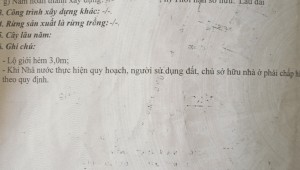 g) Năm hoàn thành xây dựng: -/-
3. Công trình xây dựng khác: -/-.
4. Rừng sản xuất là rừng trồng: -/-.
5. Cây lâu năm:
6. Ghi chú:
- Lộ giới hẻm 3,0m;
- Khi Nhà nước thực hiện quy hoạch, người sử dụng đất, chủ sở hữu nhà ở phải chấp h
theo quy định.